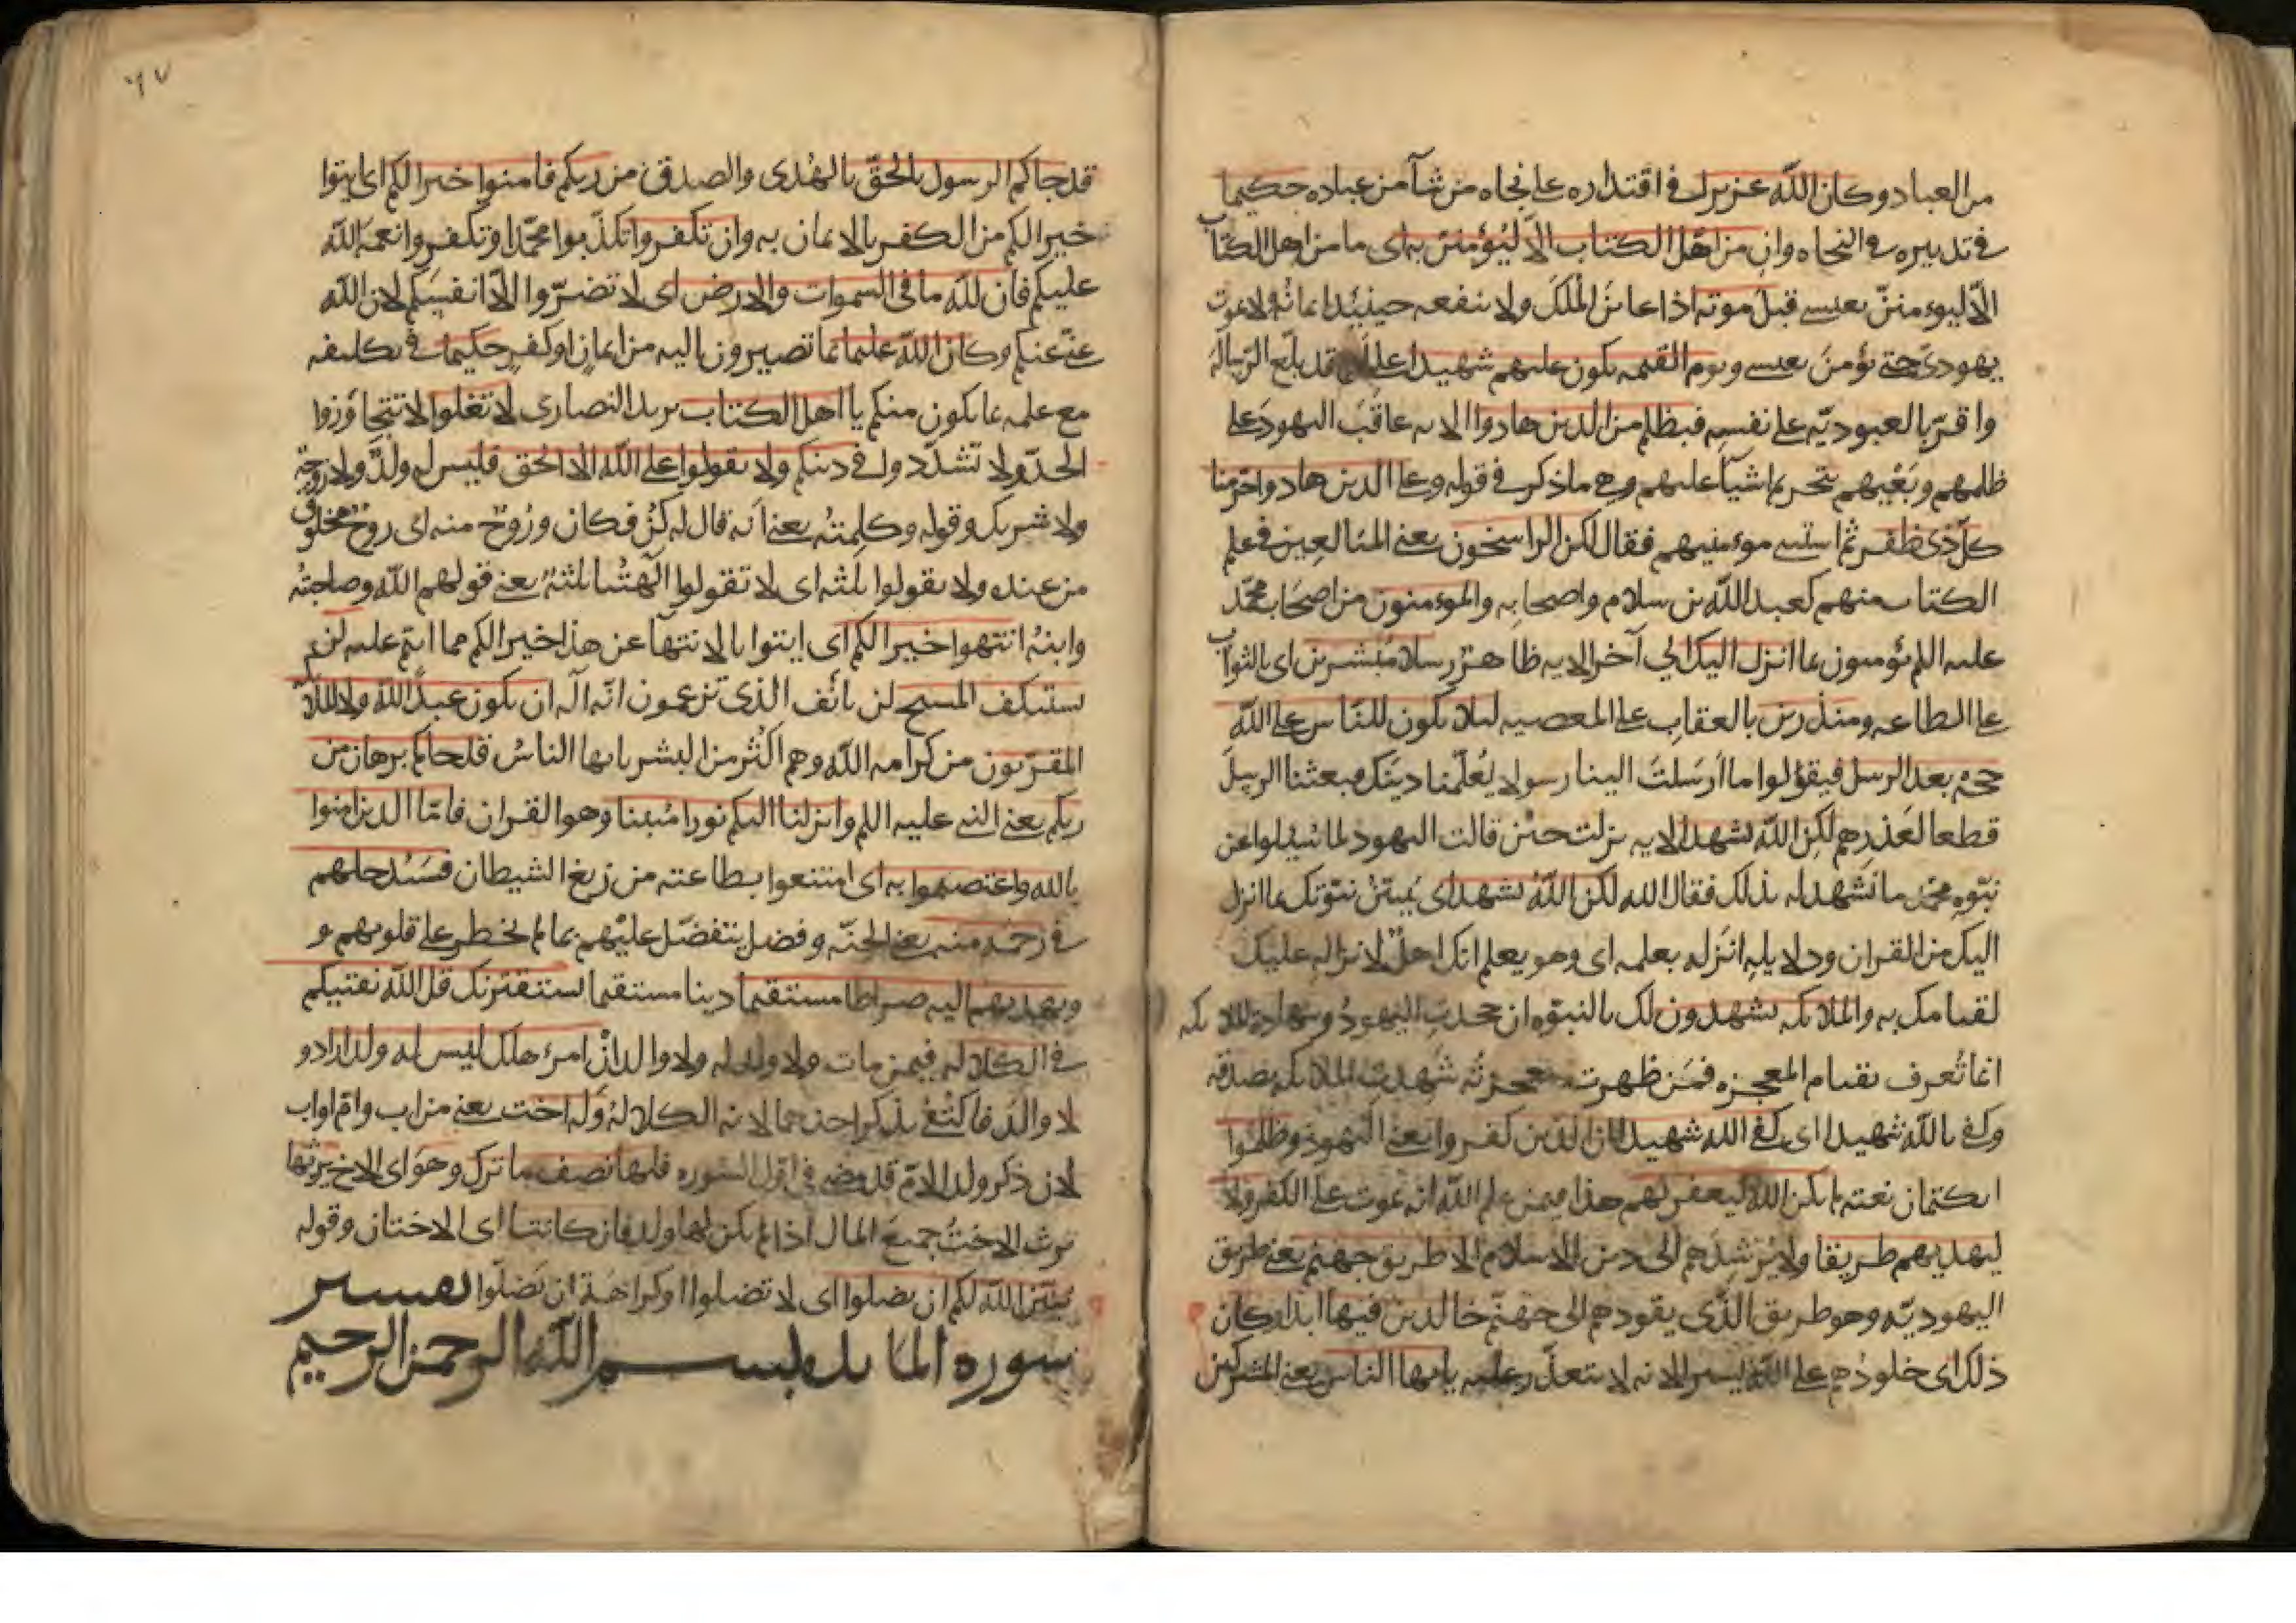 من العباد وكان الله عزيزا في اقتداره على نجاه من شآ من عباده حكيما
في تدبيره في النجاه وان من اهل الكتاب الا ليؤمنن به اى ما من اهل الكتاب
الّا ليوءمننّ بعيسى قبل موته اذا عاين المَلَك ولا ينفعه حينيئذ ايمانُه ولا يموت
يهودىّ حتى يؤمنَ بعيسى ويوم القيمه يكون عليهم شهيدا على قد بلّغ الرّسالهَ
واقرّ بالعبوديّه على نفسِه فبظلم من الذين هادوا الايه عاقَبَ اليهودَ على
ظلمهم وبَغْيهم بتحريم اشيآ عليهم وهى ما ذكر في قوله وعلى الذين هادوا حرّمنا
كلّ ذى ظفر ثم استثنى موءمنيهم فقال لكن الراسخون يعنى المبالعِين في علم
الكتاب منهم كعبد الله بن سلام واصحابه والموءمنون من اصحَاب محمّد
عليه اللم يؤمنون بما انزل اليك الي آخر الايه ظاهرٌ رسلا مُبشرين اى بالثواب
على الطاعه ومنذرين بالعقاب على المعصيه ليلا يكون للنّاس على الله
حجه بعد الرسل فيقؤلوا ما ارَسَلتَ الينا رسولا يُعُلّمنا دينَك فبعثنا الرسلَ
قطعا لعَذرِهم لكِن الله يشهد الايه نزلت حين قالت اليهود لما سُيلوا عن
نبوّه محمّد ما نشهد له بذلك فقال الله لكن اللهُ يشهد اى يُبيّنُ نبوّتك بما انزل
اليك من القران ودلايلِه انَزله بعلمه اى وهو يعلم انك اهلٌ لانزاله عليك
لقيامك به والملايكه يشهدون لك بالنبوّه ان جحدتِ اليهودُ وشهادة الملايكه
انما تُعرف بقيام المعجزه فمَن ظهرت معجزتُه شَهِدت الملايكه بصدقه
وكفى بالله شهيدا اى كفى الله شهيدا ان الذين كفروا يعنى اليهود وظلموا
بكتمان نعته لم يكن الله ليغفر لهم هذا فيمن علم الله انه يموت على الكفر ولا
ليهديهم طريقا ولا يُرْشدَهم الى دين الاسلام الا طريق جهنم يعنى طريق
اليهوديّه وهو طريق الذّى يقودهم الى جهنّم خالدين فيها ابدا وكان
ذلك اى خلودُهم على الله يسيرا لانه لا يتعذّر عليه يا ايها الناس يعنى المشركين
قد جاكم الرسول بالحقّ بالهُدى والصدق من ربكم فامنوا خيرا لكم اى ايتوا
خيرا لكم من الكفر بالايمان به وان تكفروا تكذّبوا محمّدا وتكفروا نعمهَ الله
عليكم فان لله ما في السموات والارض اى لا تضرّوا الّا انفسَكم لان الله
غنىّ عنكم وكان الله عليما بما تصيرون اليه من ايمانٍ او كفرٍ حكيما في تكليفه
مع علمه بما يكون منكم يا اهل الكتاب يريد النصارى لا تغلوا لا تتجاوَزوا
الحدّ ولا تشدّدوا في دينكم ولا يقولوا على الله الا الحق فليس له ولدٌ ولا زوجةٌ
ولا شريك وقوله وكلِمتهُ يعنى اَنه قال له كُنْ فكان ورُوحٌ منه اى روحٌ مخلوقٌ
من عنده ولا يقولوا ثلثه اى لا تقولوا الهتنا ثلثهٌ يعنى قولهم الله وصاحبتُه
وابنهُ انتهوا خيرا لكم اى ايتوا بالانتهآ عن هذا خيرا لكم مما انتم عليه لن
يستنكف المسيح لن يانَف الذى تزعمون انّه الَه ان يكون عبداً لله ولا الملايكه
المقرّبون من كرامه الله وهم اكْثرُ من البشر يا ايها الناسُ قد جاكم برهان من
ربكم يعنى النبى عليه اللم وانزلنا اليكم نورا مُبينا وهوا القران فامّا الذين امنوا
بالله واعتصموا به اى امتنعوا بطاعته من زيغ الشيطان فسَيُدخلهم
في رحمه منه يعنى الجنّه وفضل يتفضّل عليهم بما لم يخطر على قلوبهم و
ويهديهم اليه صراطا مستقيما دينا مستقيما يستفتونك قل الله يفتيكم
في الكلاله فيمن مات ولا ولد له ولا والد انْ امرؤ هلك ليس له ولد اراد و
لا والدَ فاكْتفىْ بذكر احدهما لانه الكلالهُ وله اخت يعنى من اب وامّ او اب
لان ذكر ولد الامّ قد مضى في اوّل السّوره فلها نصف ما ترك وهوَ اى الاخ يرثها
يرث الاختُ جميعَ المال اذا لم يكن لها ولد فان كانتا اى الاختان وقوله
يبيّن الله لكم ان تضلوا اى لا تضلوا او كراهةَ ان تَضلّوا تفسير
سوره المائده بسم الله الرحمن الرحيم